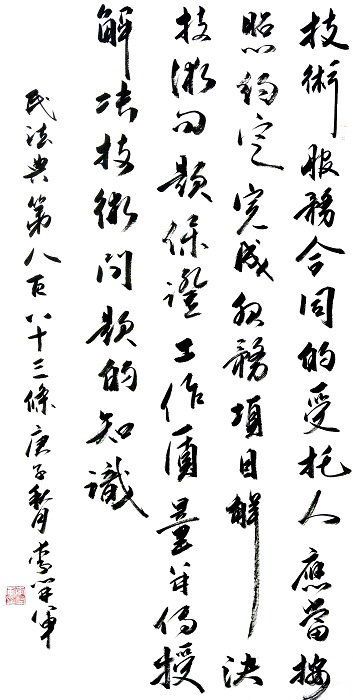 技術服務合同的受托人應當按
照約定完成服務項目解決
技術問題保證工作質量并傳授
解决技術問題的知識
民法典第八百八十三條庚子秋月李學軍